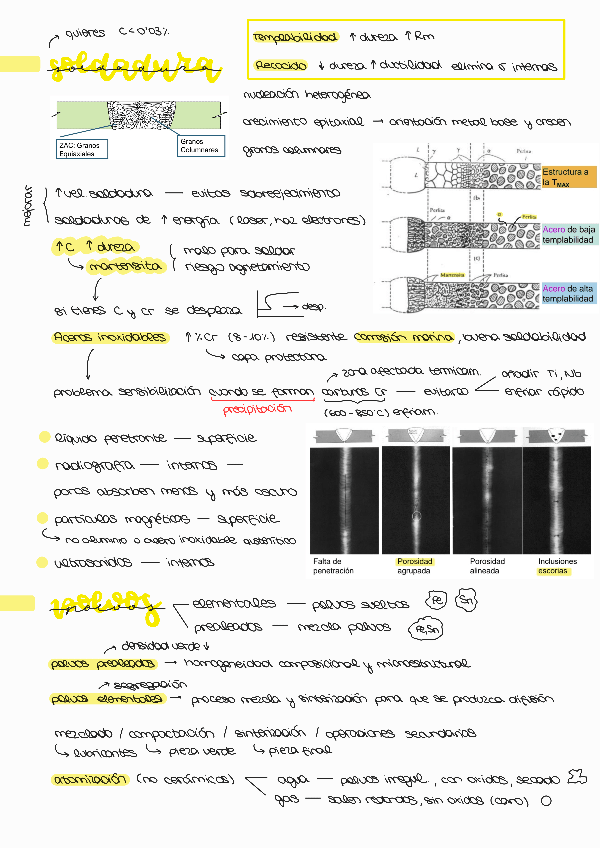 quieres C < 0'03%
soldadura
Templabilidad ↑ dureza ↑ Rm
Recocido ↓ dureza ↑ ductilidad elimina σ internas
nucleación heterogénea
crecimiento epitaxial → orientación metal base y crecen
granos columnares
ZAC: Granos Equiaxiales
Granos Columnares
L
γ
γ
α
Perlita
Estructura a la TMAX
(b)
Perlita
α
α
Perlita
Acero de baja templabilidad
(c)
Martensita
Perlita
Acero de alta templabilidad
mejorar
↑ vel soldadura — evitas sobreenvejecimiento
soldaduras de ↑ energía (laser, haz electrones)
↑C ↑ dureza
↳ martensita
malo para soldar
riesgo agrietamiento
si tienes C y Cr se desplaza
→ desp.
Aceros inoxidables ↑ %Cr (8-10%) resistente corrosión marina, buena soldabilidad
↳ capa protectora
zona afectada termicam.
problema sensibilización cuando se forman carburos Cr — evitarlo
añadir Ti, Nb
enfriar rápido
precipitación
(600-850°C) enfriam.
líquido penetrante — superficie
radiografía — internos —
poros absorben menos y más oscuro
partículas magnéticas — superficie
↳ no aluminio o acero inoxidable austenítico
ultrasonidos — internos
Falta de penetración
Porosidad agrupada
Porosidad alineada
Inclusiones escorias
polvos
elementales — polvos sueltos
Fe
Sn
prealeados — mezcla polvos
Fe,Sn
densidad verde ↓
polvos prealeados → homogeneidad composicional y microstructural
segregación
polvos elementales → proceso mezcla y sinterización para que se produzca difusión
mezclado / compactación / sinterización / operaciones secundarias
↳ lubricantes ↳ pieza verde ↳ pieza final
atomización (no cerámicos)
agua — polvos irregul., con oxidos, secado
gas — salen redondos, sin oxidos (caro)